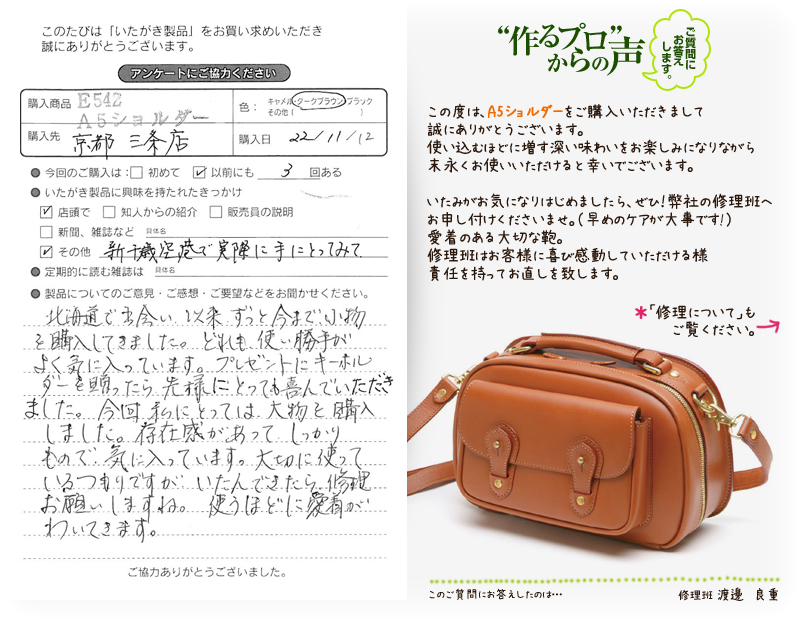 このたびは「いたがき製品」をお買い求めいただき
誠にありがとうございます。
アンケートにご協力ください
購入商品 E542
A5ショルダー
色： キャメル・ダークブラウン・ブラック
その他（ ）
購入先 京都 三条店
購入日 22/11/12
今回のご購入は： 初めて ✓以前にも 3 回ある
いたがき製品に興味を持たれたきっかけ
✓店頭で 知人からの紹介 販売員の説明
新聞、雑誌など 具体名
✓その他 新千歳空港で実際に手にとってみて
定期的に読む雑誌は 具体名
製品についてのご意見・ご感想・ご要望などをお聞かせください。
北海道で出会い、以来、ずっと今まで小物
を購入してきました。どれも、使い勝手が
よく気に入っています。プレゼントにキーホル
ダーを贈ったら、先様にとっても喜んでいただき
ました。今回、私にとっては、大物を購入
しました。存在感があって、しっかり
もので、気に入っています。大切に使って
いるつもりですが、いたんできたら、修理
お願いしますね。使うほどに愛着が
わいてきます。
ご協力ありがとうございました。
“作るプロ”
からの声
ご質問に
お答え
します。
この度は、A5ショルダーをご購入いただきまして
誠にありがとうございます。
使い込むほどに増す深い味わいをお楽しみになりながら
末永くお使いいただけると幸いでございます。
いたみがお気になりはじめましたら、ぜひ！弊社の修理班へ
お申し付けくださいませ。（早めのケアが大事です！）
愛着のある大切な鞄。
修理班はお客様に喜び感動していただける様
責任を持ってお直しを致します。
＊「修理について」も
ご覧ください。
このご質問にお答えしたのは…
修理班 渡邊 良重